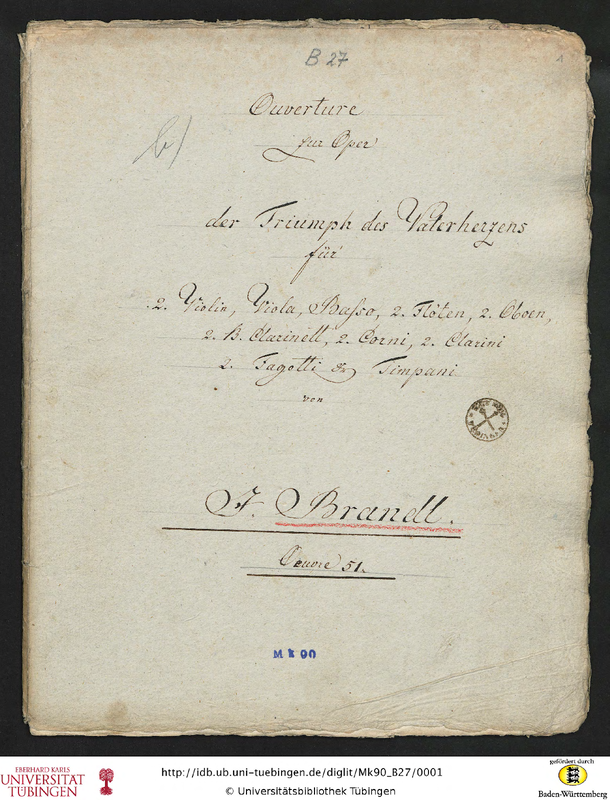 B 27
1
Ouverture
zur Oper
b)
der Triumph des Vaterherzens
für
2. Violin, Viola, Basso, 2. Flöten, 2. Oboen,
2. B. Clarinett, 2. Corni, 2. Clarini
2. Fagotti & Timpani
von
F. Brandl.
Oeuvre 51.
Mk 90
EBERHARD KARLS
UNIVERSITÄT
TÜBINGEN
http://idb.ub.uni-tuebingen.de/diglit/Mk90_B27/0001
© Universitätsbibliothek Tübingen
gefördert durch
Baden-Württemberg